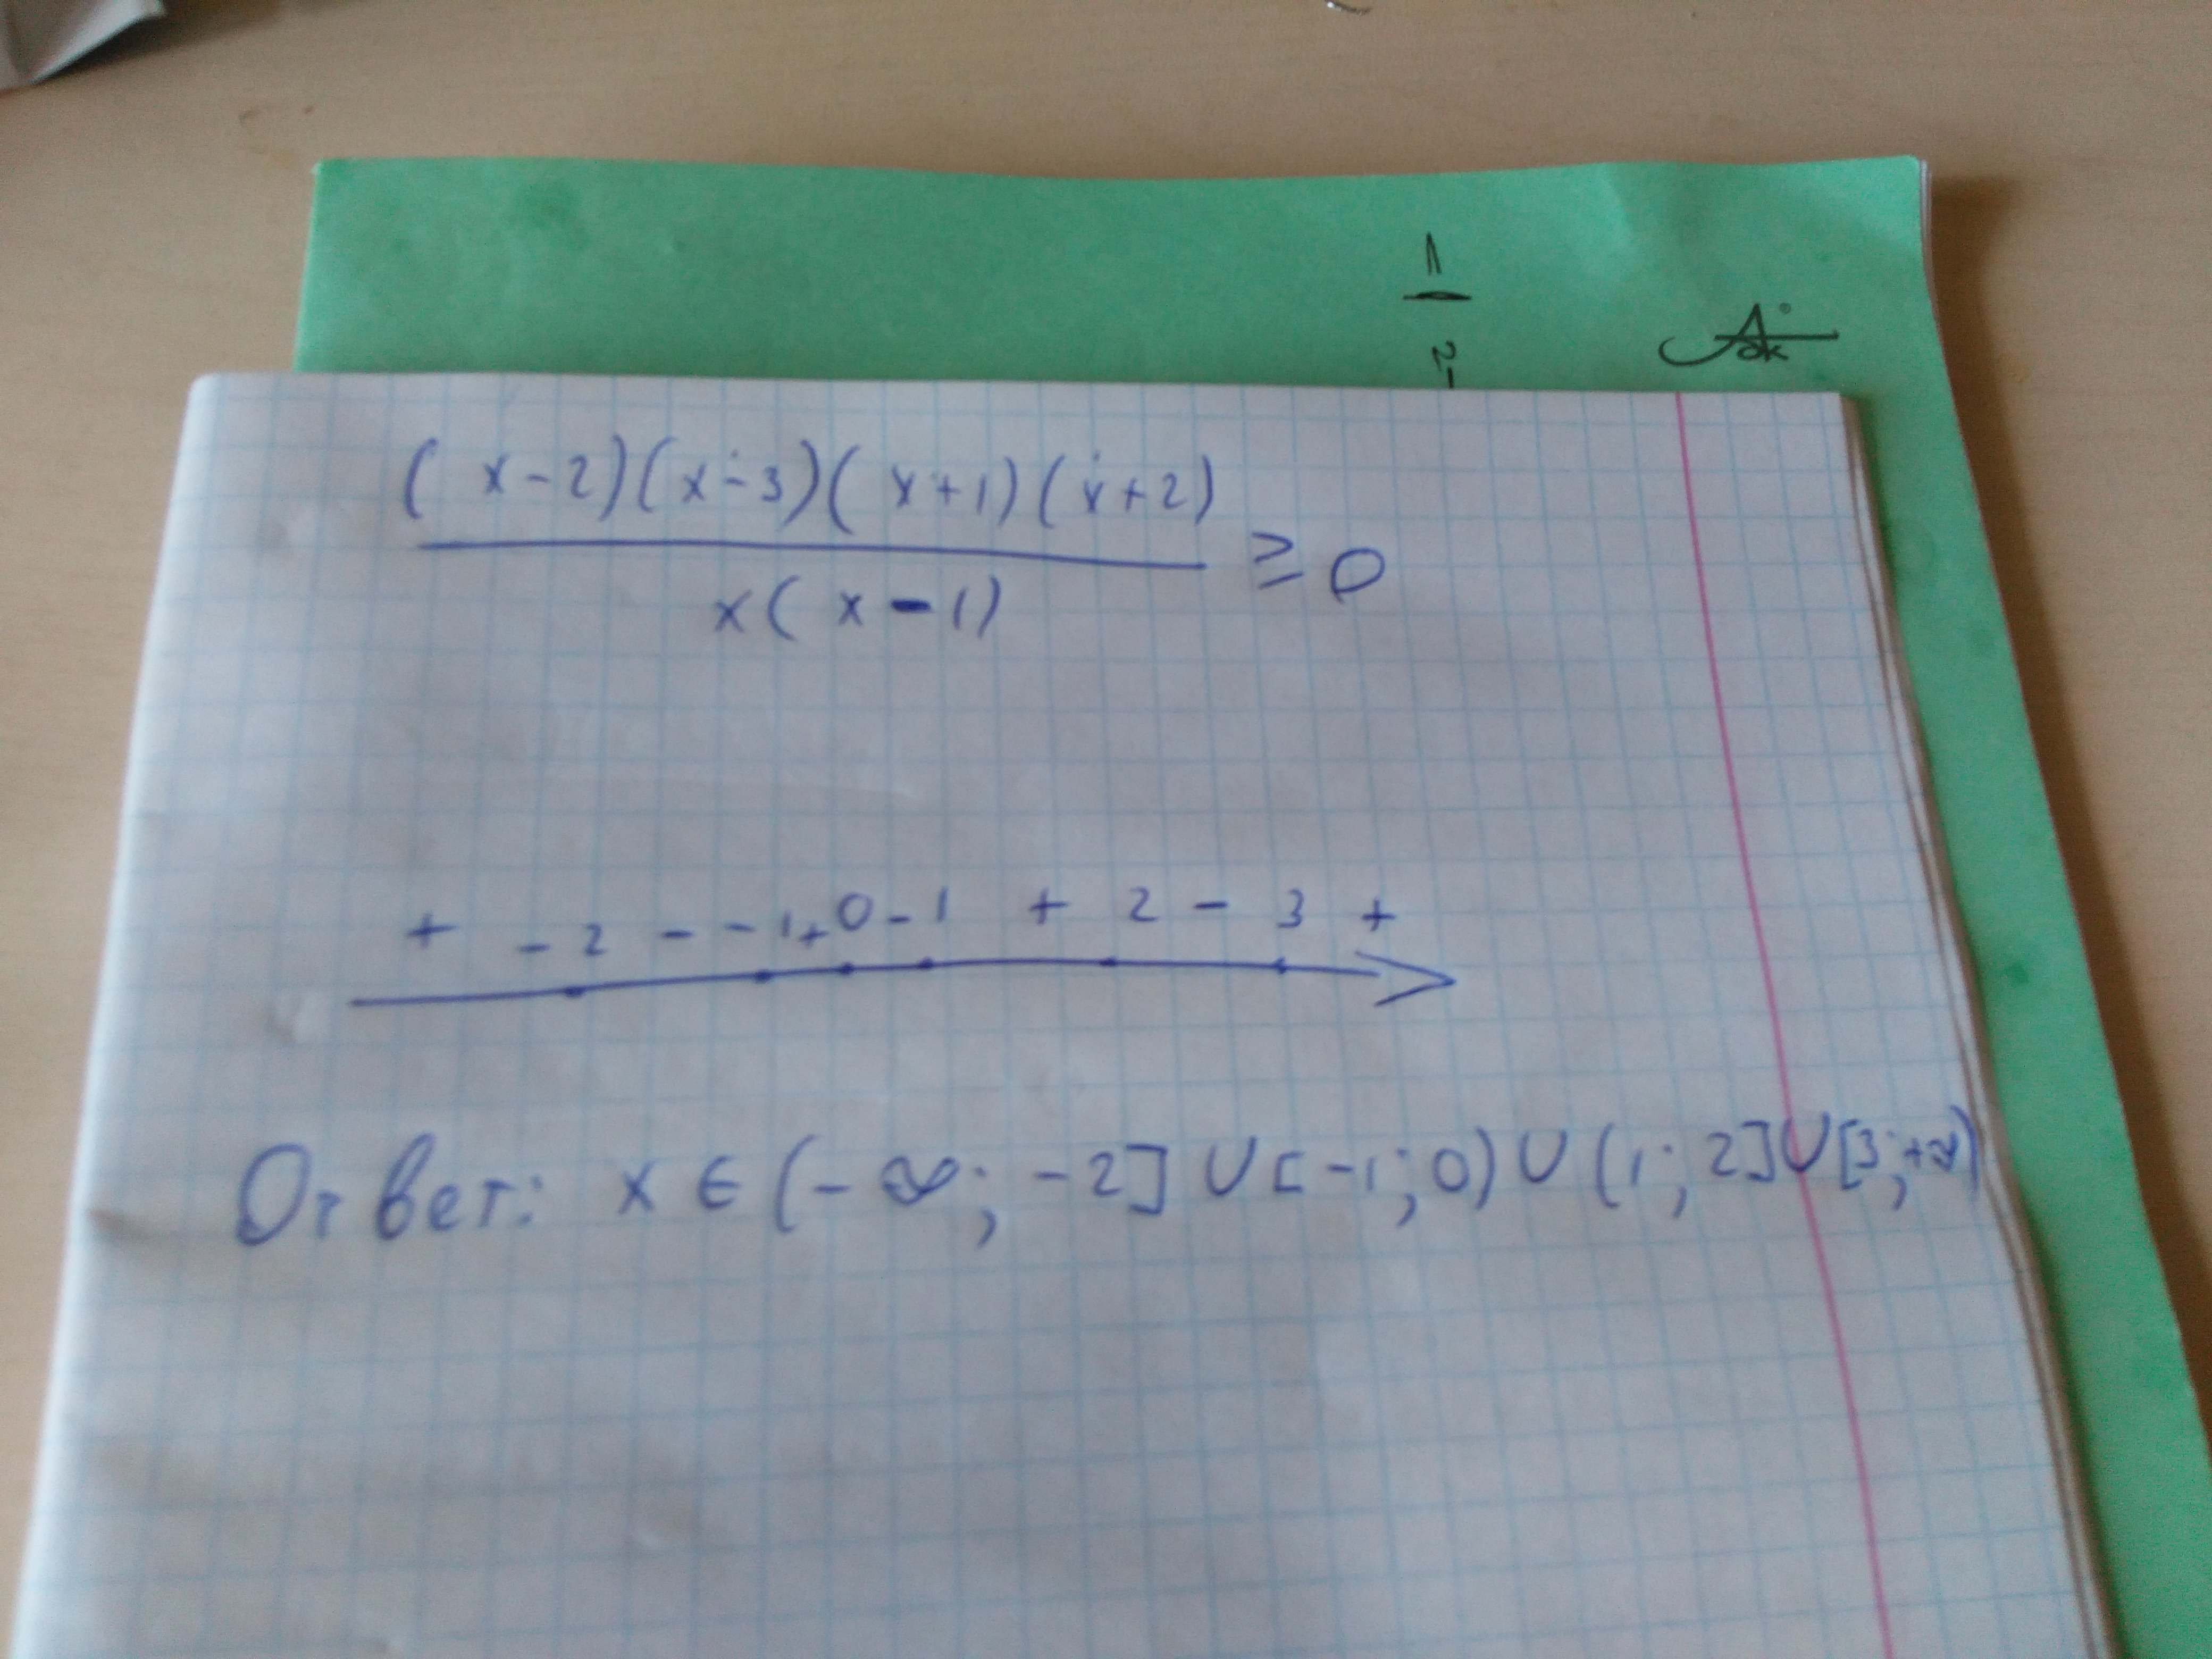 1
2
Aэк
(x-2)(x-3)(x+1)(x+2)
x(x-1)
≥ 0
+ -2 - -1 + 0 - 1 + 2 - 3 +
Ответ: x ∈ (-∞; -2] ∪ [-1; 0) ∪ (1; 2] ∪ [3; +∞)